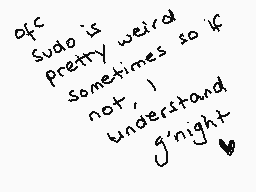 ofc
sudo is
pretty weird
sometimes so if
not, I
understand
g'night ♥